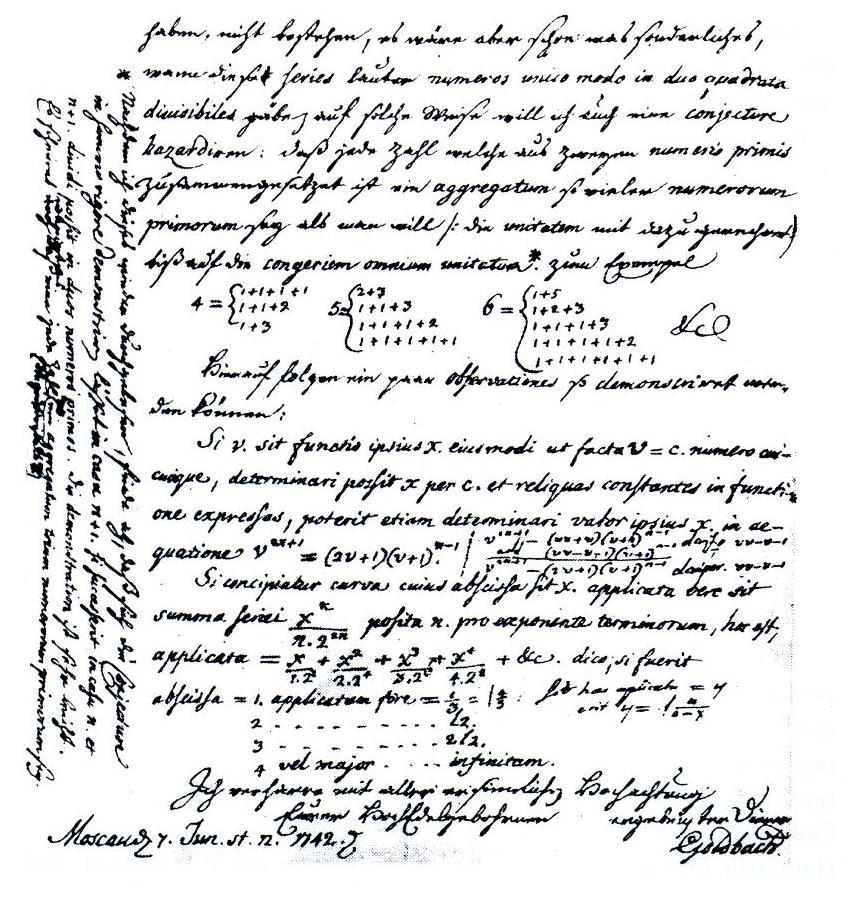 haben, nicht bestehen, es wäre aber schon was sonderliches,
wann diese series lauter numeros unico modo in duo quadrata
divisibiles gäbe, auf solche Weise will ich auch eine conjecture
hazardiren: daß jede Zahl welche aus zweyen numeris primis
zusammengesetzet ist ein aggregatum so vieler numerorum
primorum sey als man will /: die unitatem mit dazu gerechnet)
biß auf die congeriem omnium unitatum*. zum Exempel
4 = { 1+1+1+1
1+1+2
1+3
5 = { 2+3
1+1+3
1+1+1+2
1+1+1+1+1
6 = { 1+5
1+2+3
1+1+1+3
1+1+1+1+2
1+1+1+1+1+1
&c
Hierauf folgen ein paar observationes so demonstriret wer-
den können:
Si v. sit functio ipsius x. eiusmodi ut facta v = c. numero cui-
cunque, determinari possit x per c. et reliquas constantes in functi-
one expressas, poterit etiam determinari valor ipsius x. in ae-
quatione v^{2x+1} = (2v+1)(v+1)^{x-1}
Si concipiatur curva cuius abscissa sit x. applicata vero sit
summa seriei x^n/n.2^{2n} posita n. pro exponente terminorum, hoc est,
applicata = x/1.2^2 + x^2/2.2^4 + x^3/3.2^6 + x^4/4.2^8 + &c. dico, si fuerit
abscissa = 1. applicatam fore = l 4/3
2 - - - - - - - - l2.
3 - - - - - - - - 2l2.
4 vel major - - - infinitam.
Ich verharre mit aller ersinnlichen Hochachtung
Eurer HochEdelgebohrnen
ergebenster Diener
Moscau d. 7. Jun. st. n. 1742.
Goldbach.
* Nachdem ich dieses wieder durchgelesen, finde ich, daß sich die conjecture
in summo rigore demonstriren läßet in casu n+1. si successerit in casu n. et
n+1. dividi possit in duos numeros primos. Die demonstration ist sehr leicht.
Es scheinet eine jede Zahl ein aggregatum trium numerorum primorum sey.